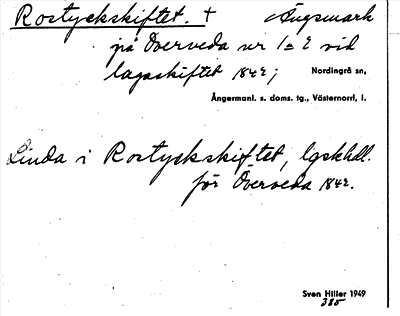 Rostyckskiftet. + Ängsmark
på Överveda nr 1=2 vid
lagaskiftet 1842; Nordingrå sn,
Ångermanl. s. doms. tg., Västernorrl, l.
Linda i Rostyckskiftet, lgskhdl.
för Överveda 1842.
Sven Hiller 1949
385